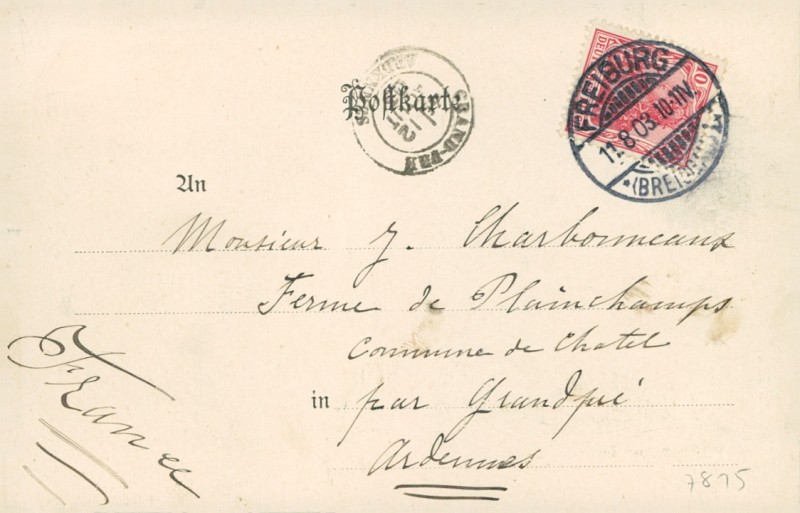 Postkarte
GRAND-PRÉ
ARDENNES
12
FREIBURG
11.8.03.10-11V.
*(BREISGAU)
10
An
Monsieur J. Charbonneaux
Ferme de Plainchamps
Commune de Chatel
in par Grandpré
Ardennes
France
7815